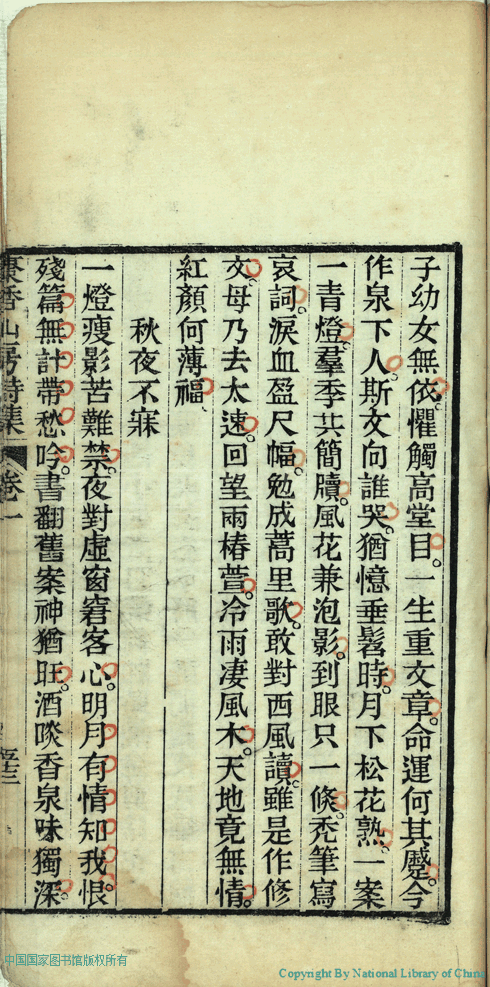 子幼女無依。懼觸高堂目。一生重文章。命運何其蹙。今
作泉下人。斯文向誰哭。猶憶垂髫時。月下松花熟。一案
一青燈。羣季共簡牘。風花兼泡影。到眼只一倏。禿筆寫
哀詞。淚血盈尺幅。勉成蒿里歌。敢對西風讀。雖是作修
文。母乃去太速。回望兩椿萱。冷雨凄風木。天地竟無情。
紅顏何薄福。
秋夜不寐
一燈瘦影苦難禁。夜對虛窗窘客心。明月有情知我恨。
殘篇無計帶愁吟。書翻舊案神猶旺。酒啖香泉味獨深。
香山房詩集 卷一
中国国家图书馆版权所有
Copyright By National Library of China